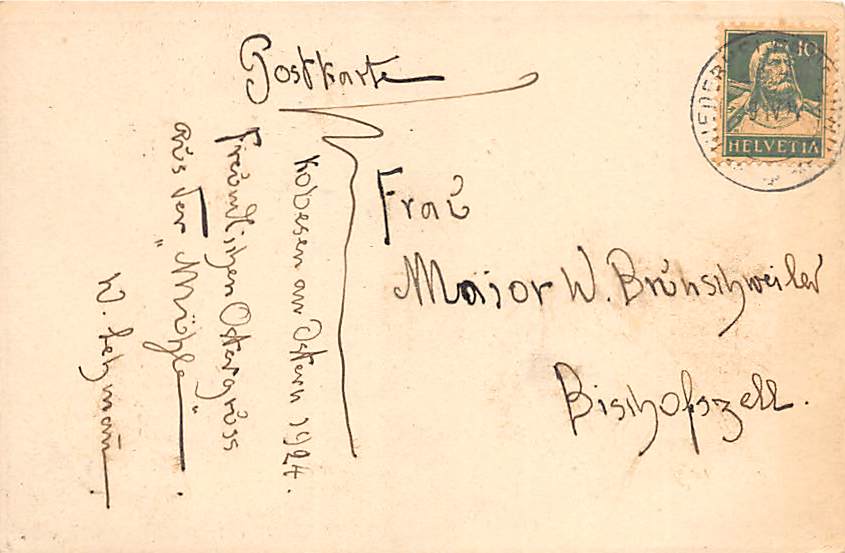 Postkarte
10
HELVETIA
Kobesen an Ostern 1924.
Freundlichen Ostergruss
aus der "Mühle".
W. Lehmann
Frau
Major W. Brunschweiler
Bischofszell.